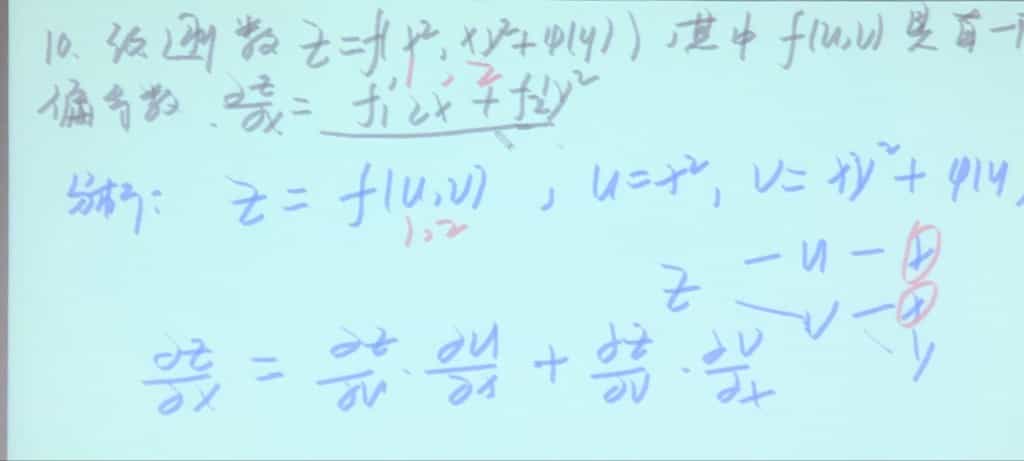 10. 设函数 z=f(x², xy²+φ(y)), 其中 f(u,v) 具有一
1, 2
偏导数. ∂z/∂x = f₁′2x + f₂′y²
分析: z = f(u,v), u=x², v=xy²+φ(y
1, 2
z - u - x
v - x
y
∂z/∂x = ∂z/∂u · ∂u/∂x + ∂z/∂v · ∂v/∂x